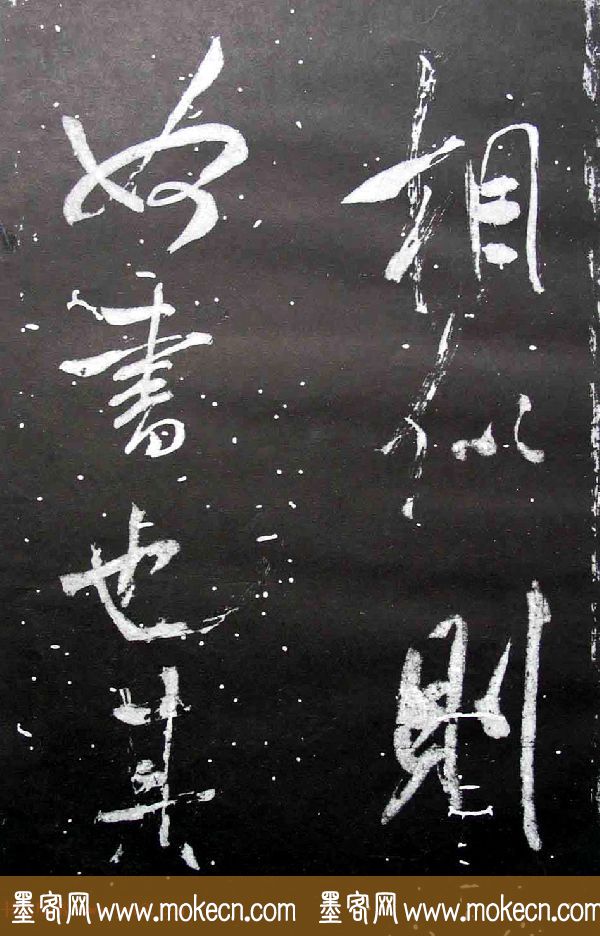 相似則
奴書也其
墨客网 www.mokecn.com 墨客网 www.mokecn.com